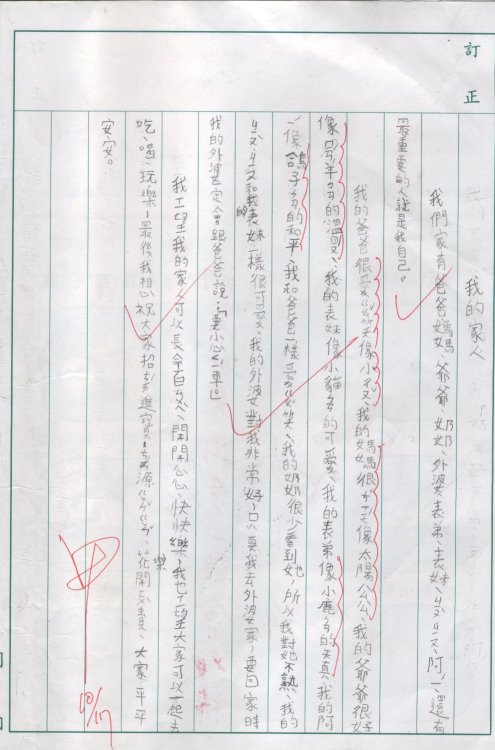 訂正
我的家人
我們家有爸爸媽媽、爺爺、奶奶、外婆、表弟、表妹、ㄐㄡˋㄐㄡ、阿ㄧˊ、還有
最重要的人就是我自己。
我的爸爸很愛ㄍㄠˇ笑像小ㄔㄡˇ、我的媽媽很
像太陽公公、我的爺爺很好
像
羊
的溫
、我的表妹像小貓
的可愛、我的表弟像小鹿
的天真、我的阿
ㄧˊ像鴿子
的和平、我和爸爸一樣愛ㄍㄠˇ笑、我的奶奶很少看到她、所以我對她不熟、我的
ㄐㄡˋㄐㄡ和我的表妹一樣很可愛、我的外婆對我非常好、只要我去外婆家、要回家時
我的外婆一定會跟爸爸說:「要小心ㄎㄞ車」
我
望我的家人可以長命百ㄙㄨㄟˋ、開開心心、快快樂樂、我也
望大家可以一起去
吃、喝、玩樂、最後我想祝大家招ㄘㄞˊ進寶、
源ㄍㄨㄣˇㄍㄨㄣˇ、花開ㄈㄨˋ貴、大家平平
安安。
甲
10/17